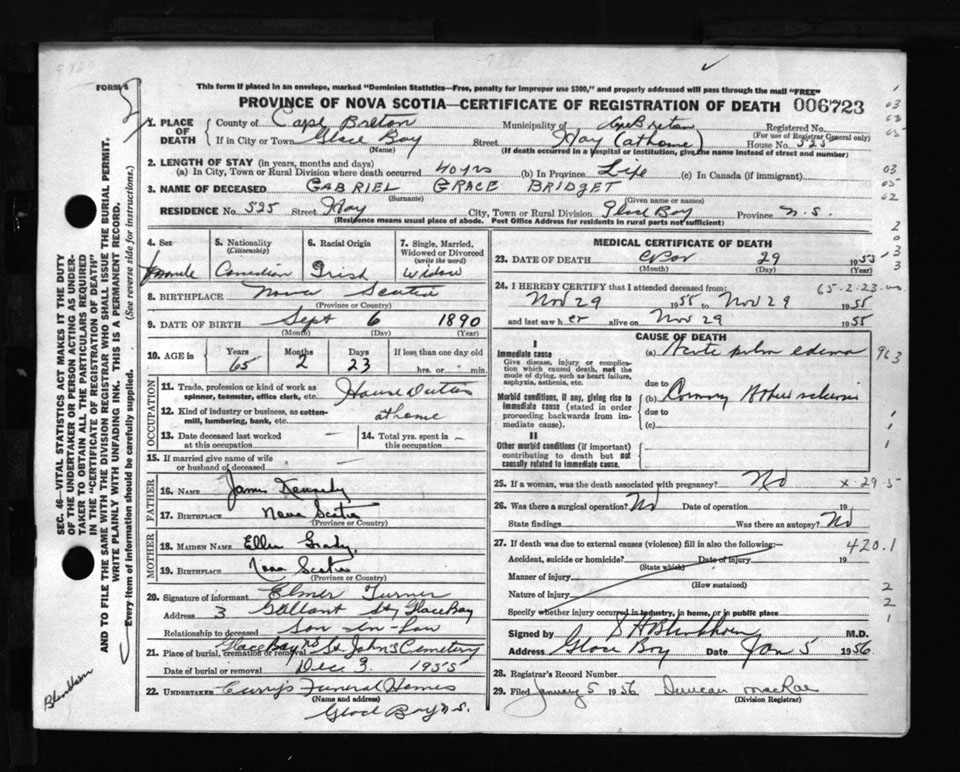 This form if placed in an envelope, marked "Dominion Statistics—Free, penalty for improper use $300," and properly addressed will pass through the mail "FREE"
FORM 8
PROVINCE OF NOVA SCOTIA—CERTIFICATE OF REGISTRATION OF DEATH 006723
1. PLACE OF DEATH
County of Cape Breton Municipality of Cape Breton Registered No.
(For use of Registrar General only)
If in City or Town Glace Bay Street Hay (at home) House No. 525
(Name) (If death occurred in a hospital or institution, give the name instead of street and number)
2. LENGTH OF STAY (in years, months and days)
(a) In City, Town or Rural Division where death occurred 40 yrs (b) In Province Life (c) In Canada (if immigrant)
3. NAME OF DECEASED GABRIEL GRACE BRIDGET
(Surname) (Given name or names)
RESIDENCE NO 525 Street Hay City, Town or Rural Division Glace Bay Province N.S.
(Residence means usual place of abode. Post Office Address for residents in rural parts not sufficient)
4. Sex 5. Nationality (Citizenship) 6. Racial Origin 7. Single, Married, Widowed or Divorced (write the word)
Female Canadian Irish Widow
8. BIRTHPLACE Nova Scotia
(Province or Country)
9. DATE OF BIRTH Sept 6 1890
(Month) (Day) (Year)
10. AGE in Years Months Days If less than one day old
65 2 23 hrs. or min.
OCCUPATION
11. Trade, profession or kind of work as spinner, teamster, office clerk, etc. House Duties
12. Kind of industry or business, as cotton-mill, lumbering, bank, etc. at home
13. Date deceased last worked at this occupation — 14. Total yrs. spent in this occupation —
15. If married give name of wife or husband of deceased —
FATHER
16. NAME James Kennedy
17. BIRTHPLACE Nova Scotia
(Province or Country)
MOTHER
18. MAIDEN NAME Ellen Grady
19. BIRTHPLACE Nova Scotia
(Province or Country)
20. Signature of informant Elmer Turner
Address 3 Gallant St, Glace Bay
Relationship to deceased Son-in-Law
21. Place of burial, cremation or removal Glace Bay NS St. John's Cemetery
Date of burial or removal Dec 3 1955
22. UNDERTAKER Curry's Funeral Homes
(Name and address)
Glace Bay N.S.
MEDICAL CERTIFICATE OF DEATH
23. DATE OF DEATH Nov 29 1955
(Month) (Day) (Year)
24. I HEREBY CERTIFY that I attended deceased from: 65-2-23
Nov 29 1955 to Nov 29 1955
and last saw her alive on Nov 29 1955
CAUSE OF DEATH
I
Immediate cause
Give disease, injury or complication which caused death, not the mode of dying, such as heart failure, asphyxia, asthenia, etc.
(a) Acute pulm edema 963
due to
Morbid conditions, if any, giving rise to immediate cause (stated in order proceeding backwards from immediate cause).
(b) Coronary
due to
(c)
II
Other morbid conditions (if important) contributing to death but not causally related to immediate cause.
25. If a woman, was the death associated with pregnancy? No x-29-5
26. Was there a surgical operation? No Date of operation 19
State findings Was there an autopsy? No
27. If death was due to external causes (violence) fill in also the following:— 420.1
Accident, suicide or homicide? Date of injury 19
(State which)
Manner of injury
(How sustained)
Nature of injury
Specify whether injury occurred in industry, in home, or in public place
Signed by M.D.
Address Glace Bay Date Jan 5 1956
28. Registrar's Record Number
29. Filed January 5 1956 Duncan MacRae
(Division Registrar)
SEC. 46—VITAL STATISTICS ACT MAKES IT THE DUTY OF THE UNDERTAKER OR PERSON ACTING AS UNDERTAKER TO OBTAIN ALL THE PARTICULARS REQUIRED IN THE "CERTIFICATE OF REGISTRATION OF DEATH" AND TO FILE THE SAME WITH THE DIVISION REGISTRAR WHO SHALL ISSUE THE BURIAL PERMIT.
WRITE PLAINLY WITH UNFADING INK. THIS IS A PERMANENT RECORD.
Every item of information should be carefully supplied. (See reverse side for instructions.)